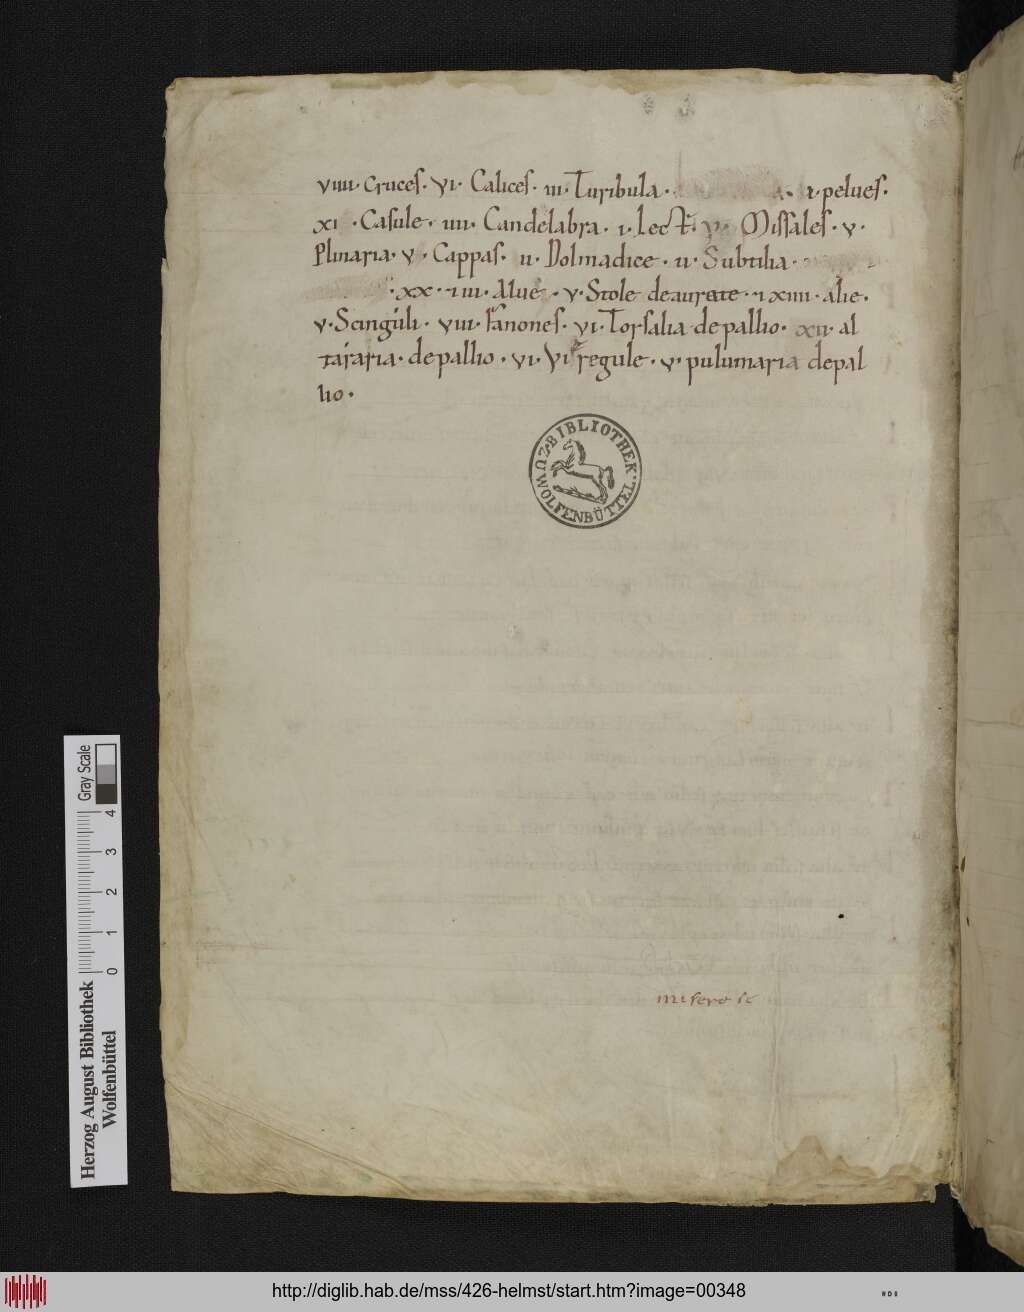 viiii · cruces · vi · Calices · iii · Turibula · i · pelues ·
xi · Casule · iiii · Candelabra · i · Lect · v · Missales · v ·
Plinaria · v · Cappas · ii · Dolmadice · ii · Subtilia ·
· xx · iiii · Alue · v · Stole deaurate · xiiii · alie ·
v · Scinguli · viii · fanones · vi · Torsalia de pallio · xii · al
taiaria · de pallio · vi · regule · v · pulumaria de pal
lio ·
BIBLIOTHEK
ZU
WOLFENBÜTTEL
misero sc
Herzog August Bibliothek
Wolfenbüttel
0 1 2 3 4
Gray Scale
http://diglib.hab.de/mss/426-helmst/start.htm?image=00348